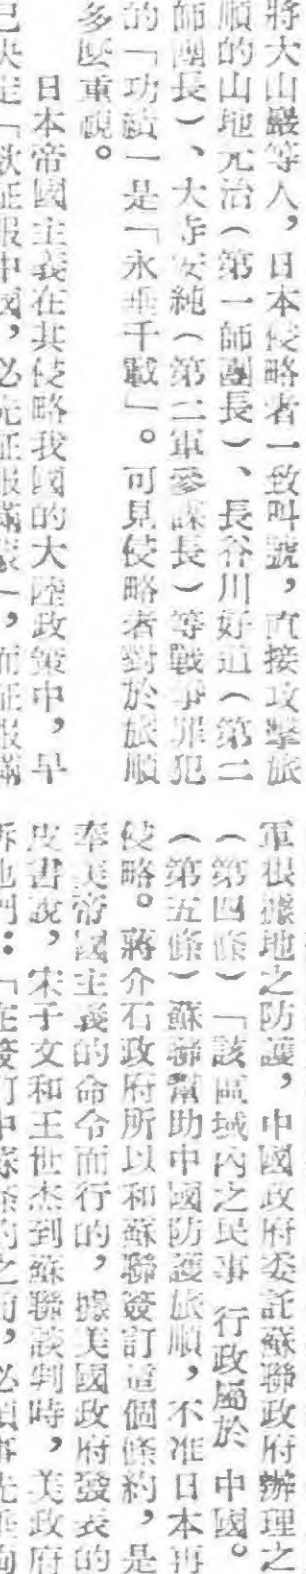 將大山巖等人，日本侵略者一致叫號，直接攻擊旅
順的山地元治（第一師團長）、長谷川好道（第二
師團長）、大寺安純（第二軍參謀長）等戰爭罪犯
的「功績」是「永垂千戰」。可見侵略者對於旅順
多麼重視。
日本帝國主義在其侵略我國的大陸政策中，早
已決定「欲征服中國，必先征服滿蒙」，而征服滿
軍根據地之防護，中國政府委託蘇聯政府辦理之
（第四條）「該區域內之民事 行政屬於 中國。
（第五條）蘇聯幫助中國防護旅順，不准日本再
侵略。蔣介石政府所以和蘇聯簽訂這個條約，是
奉美帝國主義的命令而行的，據美國政府發表的
皮書說，宋子文和王世杰到蘇聯談判時，美政府
訴他們：「在簽訂中蘇條約之前，必須事先